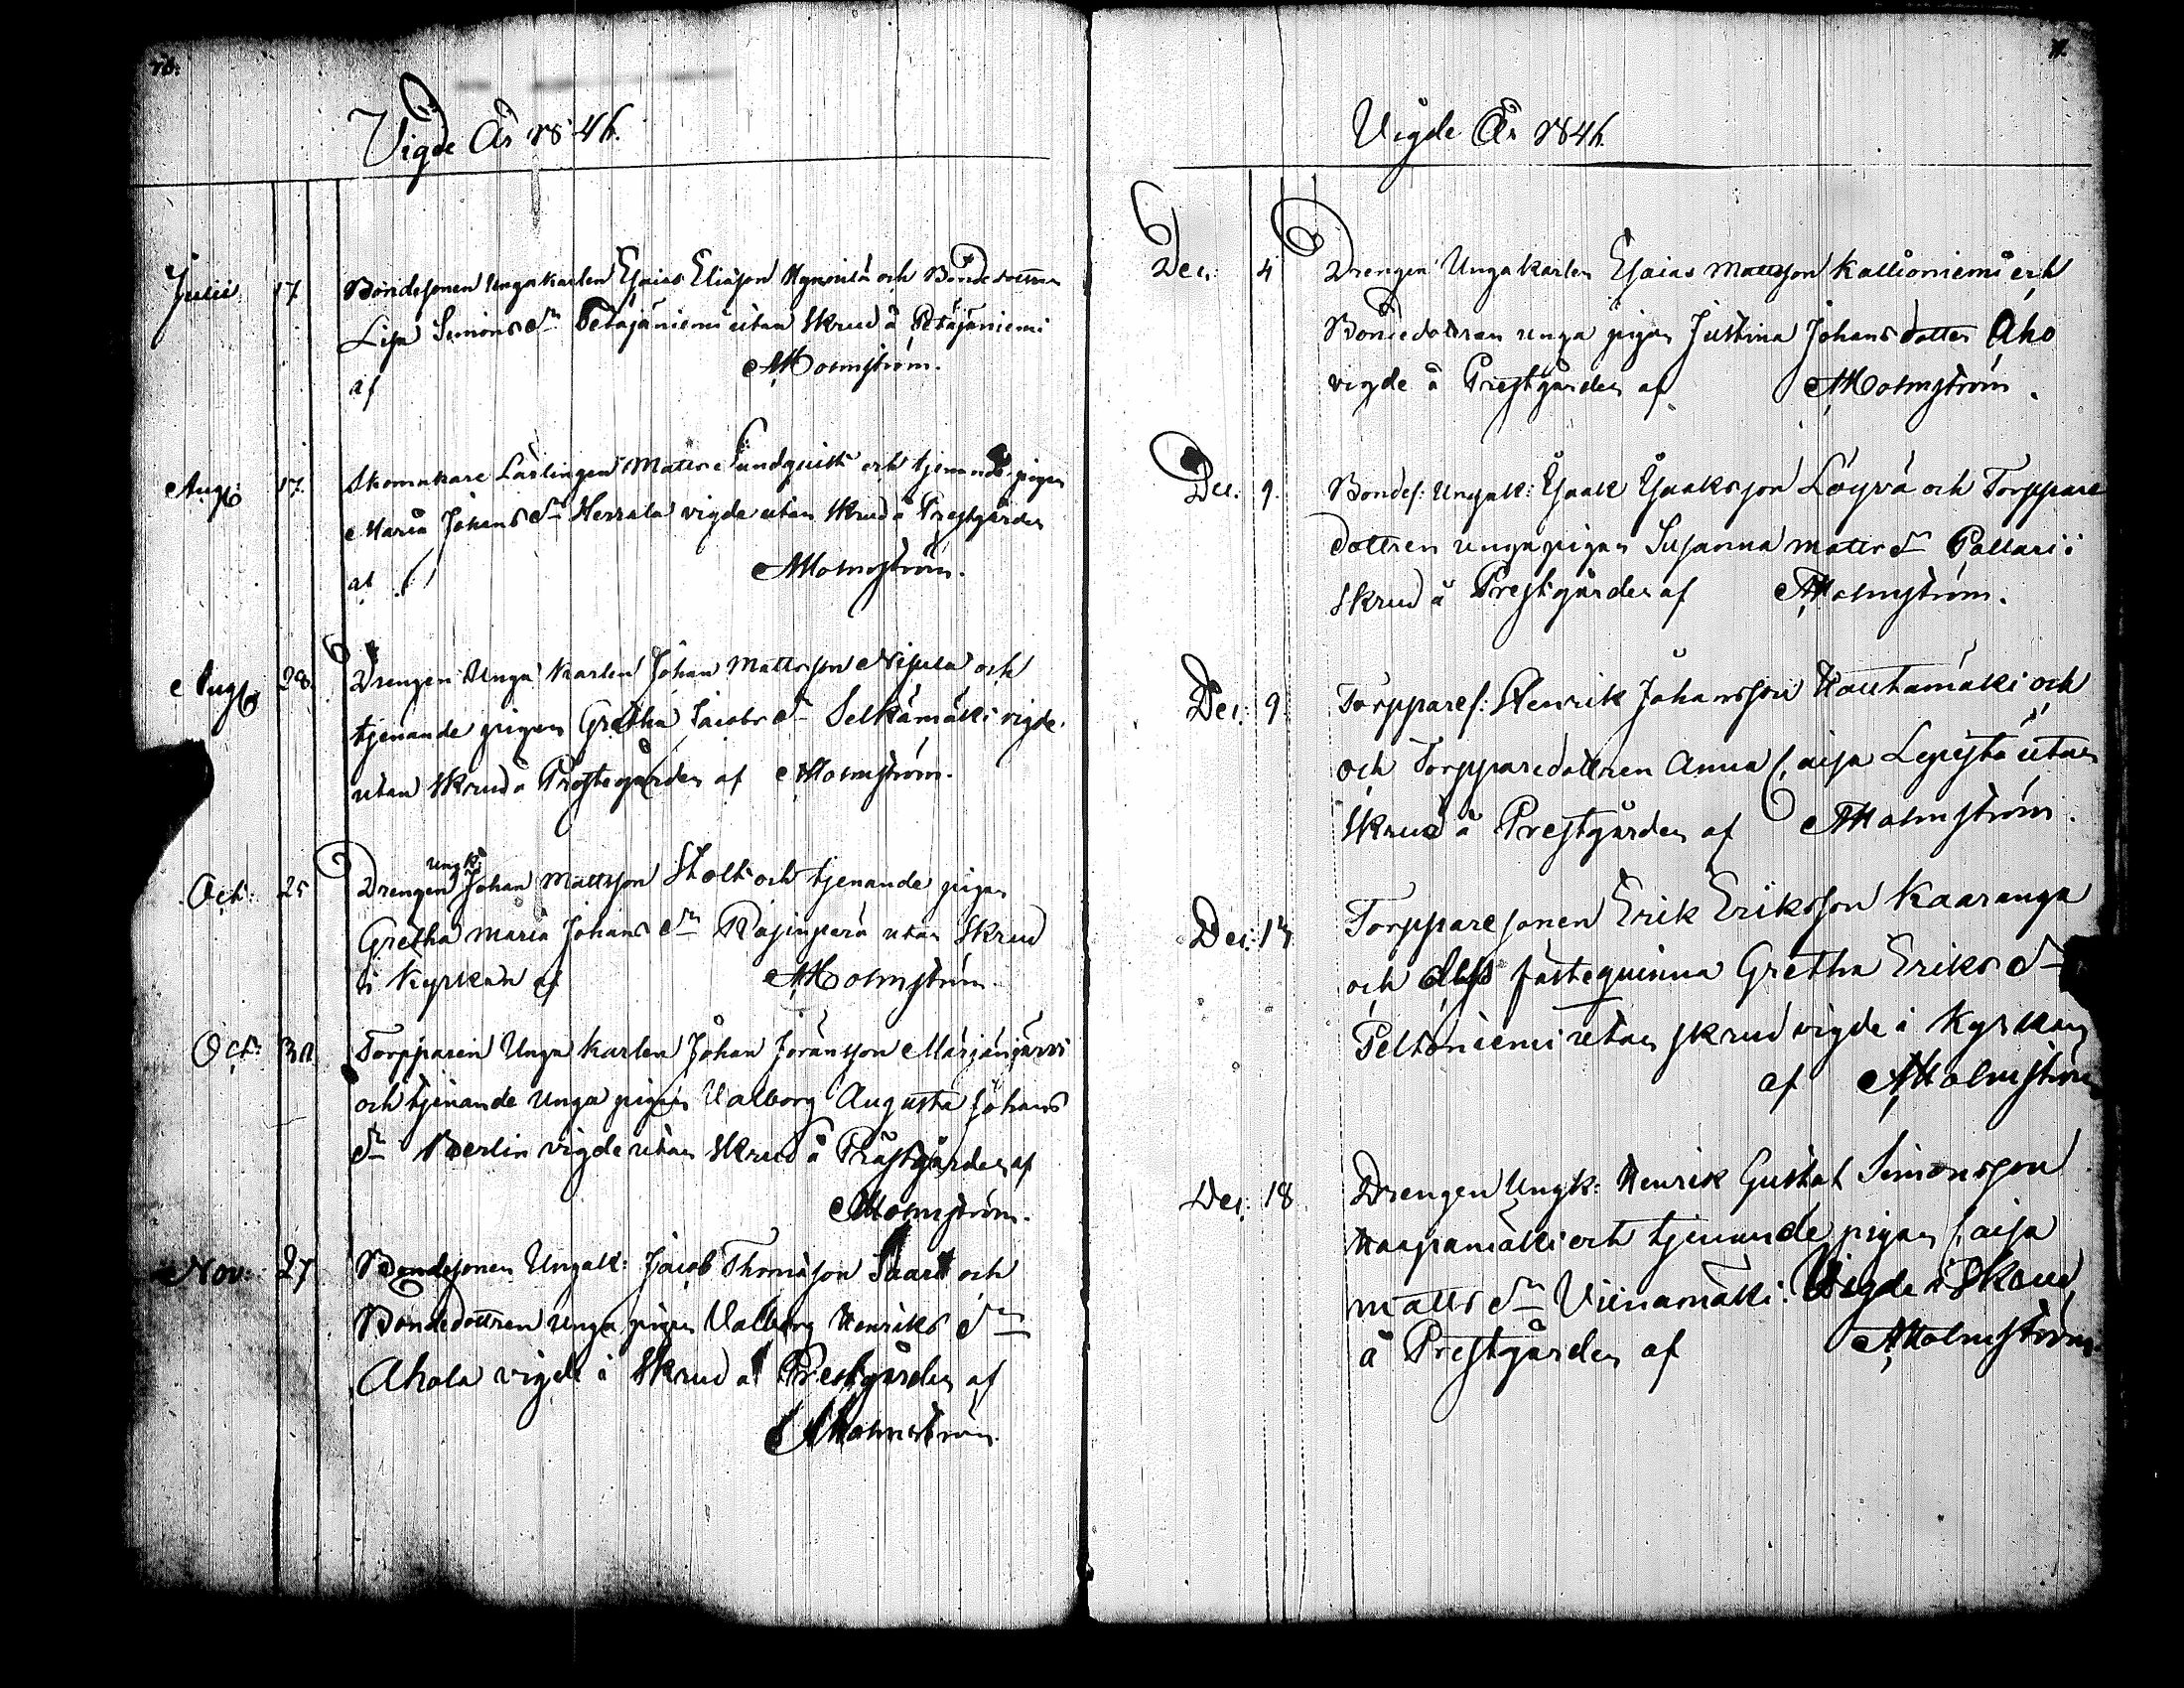 Vigde År 1846.
Julii 17. Bondesonen Ungakarlen Esaias Eliasson och Bondedottren
Lisa Simons dr Petäjäniemi utan Skrud å Petäjäniemi
af AHolmström.
Aug: 17. Skomakare Lärlingen Matts Sundquist och tjenande pigan
Maria Johans dr Herrala vigde utan Skrud å Prestgården
af AHolmström.
Aug: 28. Drengen Unga Karlen Johan Mattsson Nisula och
tjenande pigan Gretha Jacobs dr Selkämäki vigde
utan Skrud å Prestegården af AHolmström.
Oct: 25 Drengen Ungk: Johan Mattsson Stolt och tjenande pigan
Gretha Maria Johans dr Rajinperä utan Skrud
i Kyrkan af AHolmström.
Oct: 30. Torpparen Unga Karlen Johan Göransson Marjanjärvi
och tjenande Unga pigan Valborg Augusta Johans
dr Berlin vigde utan Skrud å Prästgården af
AHolmström.
Nov: 27 Bondesonen Ungak: Jacob Thomasson Saari och
Bondedottren unga pigan Valborg Henriks dr
Ahola vigde i Skrud å Prestgården af
AHolmström.
Vigde År 1846.
Dec: 4 Drengen Ungakarlen Esaias Mattsson Kallioniemi och
Bondedottran unga pigan Justina Johans dotter Aho
vigde å Prestgården af AHolmström.
Dec. 9. Bondes: Ungak: Isaak Isaksson Löyvä och Torppare
dottren unga pigan Susanna Matts dr Pollari i
Skrud å Prestgården af AHolmström.
Dec: 9. Torppares: Henrik Johansson Hautamäki och
och Torpparedottren Anna Caisa Lepistö utan
Skrud å Prestgården af AHolmström.
Dec: 13 Torpparesonen Erik Eriksson Kaaranga
och dess fästequinna Gretha Eriks dr
Peltoniemi utan skrud vigde i Kyrkan
af AHolmström
Dec: 18 Drengen Ungk: Henrik Gustaf Simonsson
Haapamäki och tjenande pigan Caisa
Matts dr Viinamäki. Vigde i Skrud
å Prestgården af AHolmström.